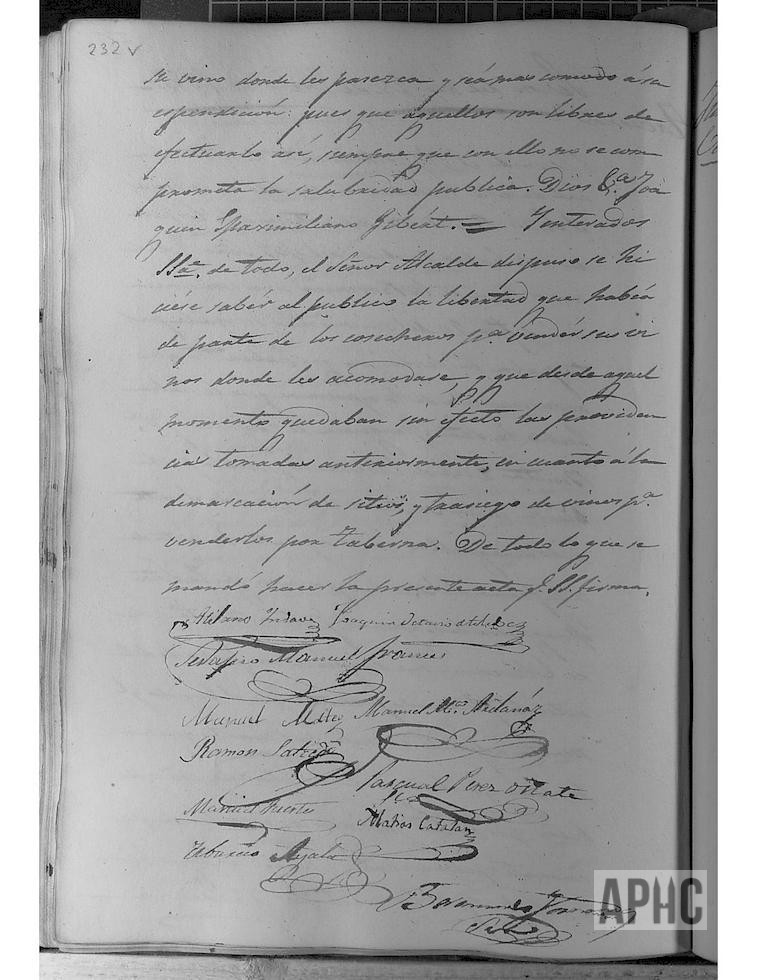 232 v
su vino donde les parezca y séa mas comodo á su
espendición: pues que aquellos son libres de
efectuarlo así, siempre que con ello no se com
prometa la salubridad publica. Dios &.ª Joa
quin Maximiliano Gibért. Y enterados
SSª. de todo, el Señor Alcalde dispuso se hi
ciése sabér al publico la libertad que había
de parte de los cosecheros pª. vendér sus vi
nos donde les acomodase, y que desde aquel
momento quedaban sin éfecto las providen
cias tomadas anteriormente, en cuanto á la
demarcación de sitios, y trasiego de vinos pª.
venderlos por taberna. De todo lo que se
mandó hacer la presente acta q. SS. firma.
Joaquin Octavio de Toledo
Serapio Manuel Frances
Manuel
Manuel Mª. Ardanáz
Ramon
Pascual Perez Oñate
Manuel Fuertes
Matias Catalan
Tiburcio Ayala
APHC